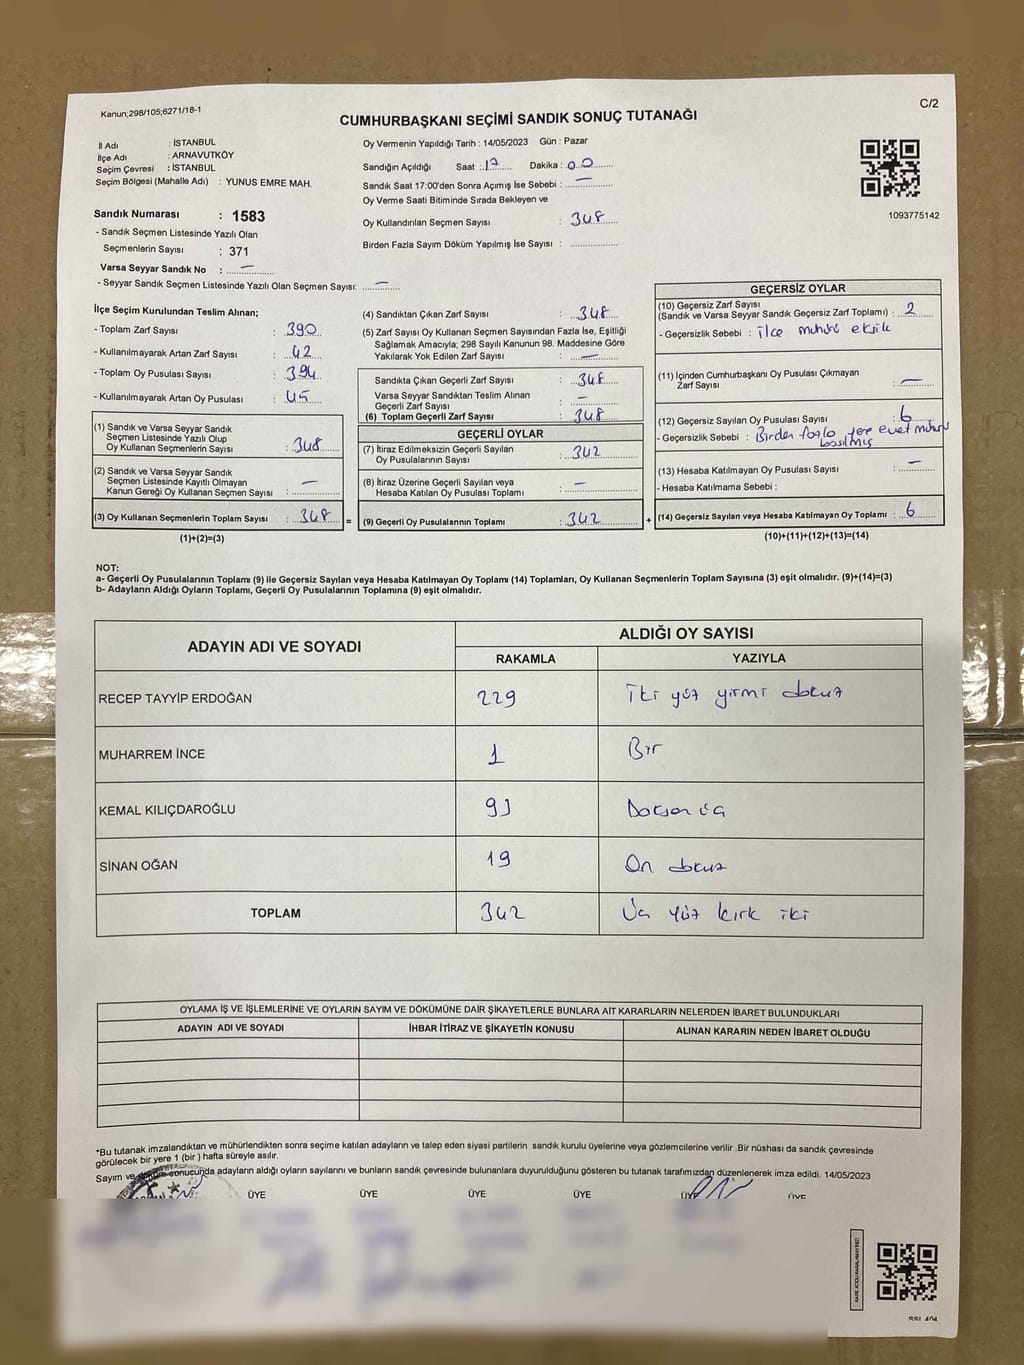 Kanun;298/105;6271/18-1
C/2
CUMHURBAŞKANI SEÇİMİ SANDIK SONUÇ TUTANAĞI
İl Adı : İSTANBUL
İlçe Adı : ARNAVUTKÖY
Seçim Çevresi : İSTANBUL
Seçim Bölgesi (Mahalle Adı) : YUNUS EMRE MAH.
Sandık Numarası : 1583
- Sandık Seçmen Listesinde Yazılı Olan
Seçmenlerin Sayısı : 371
Varsa Seyyar Sandık No : —
- Seyyar Sandık Seçmen Listesinde Yazılı Olan Seçmen Sayısı: —
Oy Vermenin Yapıldığı Tarih : 14/05/2023 Gün : Pazar
Sandığın Açıldığı Saat : 17 Dakika : 00
Sandık Saat 17:00'den Sonra Açılmış İse Sebebi : —
Oy Verme Saati Bitiminde Sırada Bekleyen ve
Oy Kullandırılan Seçmen Sayısı : 348
Birden Fazla Sayım Döküm Yapılmış İse Sayısı :
1093775142
İlçe Seçim Kurulundan Teslim Alınan;
- Toplam Zarf Sayısı : 390
- Kullanılmayarak Artan Zarf Sayısı : 42
- Toplam Oy Pusulası Sayısı : 394
- Kullanılmayarak Artan Oy Pusulası : 45
(1) Sandık ve Varsa Seyyar Sandık
Seçmen Listesinde Yazılı Olup
Oy Kullanan Seçmenlerin Sayısı : 348
(2) Sandık ve Varsa Seyyar Sandık
Seçmen Listesinde Kayıtlı Olmayan
Kanun Gereği Oy Kullanan Seçmen Sayısı : —
(3) Oy Kullanan Seçmenlerin Toplam Sayısı : 348 =
(1)+(2)=(3)
(4) Sandıktan Çıkan Zarf Sayısı : 348
(5) Zarf Sayısı Oy Kullanan Seçmen Sayısından Fazla İse, Eşitliği
Sağlamak Amacıyla; 298 Sayılı Kanunun 98. Maddesine Göre
Yakılarak Yok Edilen Zarf Sayısı : —
Sandıkta Çıkan Geçerli Zarf Sayısı : 348
Varsa Seyyar Sandıktan Teslim Alınan
Geçerli Zarf Sayısı : —
(6) Toplam Geçerli Zarf Sayısı : 348
GEÇERLİ OYLAR
(7) İtiraz Edilmeksizin Geçerli Sayılan
Oy Pusulalarının Sayısı : 342
(8) İtiraz Üzerine Geçerli Sayılan veya
Hesaba Katılan Oy Pusulası Toplamı : —
(9) Geçerli Oy Pusulalarının Toplamı : 342 +
GEÇERSİZ OYLAR
(10) Geçersiz Zarf Sayısı
(Sandık ve Varsa Seyyar Sandık Geçersiz Zarf Toplamı) : 2
- Geçersizlik Sebebi : ilce muhuru eksik
(11) İçinden Cumhurbaşkanı Oy Pusulası Çıkmayan
Zarf Sayısı : —
(12) Geçersiz Sayılan Oy Pusulası Sayısı : 6
- Geçersizlik Sebebi : Birden fazla yere evet mührü
basılmış
(13) Hesaba Katılmayan Oy Pusulası Sayısı : —
- Hesaba Katılmama Sebebi :
(14) Geçersiz Sayılan veya Hesaba Katılmayan Oy Toplamı : 6
(10)+(11)+(12)+(13)=(14)
NOT:
a- Geçerli Oy Pusulalarının Toplamı (9) ile Geçersiz Sayılan veya Hesaba Katılmayan Oy Toplamı (14) Toplamları, Oy Kullanan Seçmenlerin Toplam Sayısına (3) eşit olmalıdır. (9)+(14)=(3)
b- Adayların Aldığı Oyların Toplamı, Geçerli Oy Pusulalarının Toplamına (9) eşit olmalıdır.
ADAYIN ADI VE SOYADI ALDIĞI OY SAYISI
RAKAMLA YAZIYLA
RECEP TAYYİP ERDOĞAN 229 iki yüz yirmi dokuz
MUHARREM İNCE 1 Bir
KEMAL KILIÇDAROĞLU 93 Doksan üç
SİNAN OĞAN 19 On dokuz
TOPLAM 342 Üç yüz kırk iki
OYLAMA İŞ VE İŞLEMLERİNE VE OYLARIN SAYIM VE DÖKÜMÜNE DAİR ŞİKAYETLERLE BUNLARA AİT KARARLARIN NELERDEN İBARET BULUNDUKLARI
ADAYIN ADI VE SOYADI İHBAR İTİRAZ VE ŞİKAYETİN KONUSU ALINAN KARARIN NEDEN İBARET OLDUĞU
*Bu tutanak imzalandıktan ve mühürlendikten sonra seçime katılan adayların ve talep eden siyasi partilerin sandık kurulu üyelerine veya gözlemcilerine verilir .Bir nüshası da sandık çevresinde
görülecek bir yere 1 (bir ) hafta süreyle asılır.
Sayım ve döküm sonucunda adayların aldığı oyların sayılarını ve bunların sandık çevresinde bulunanlara duyurulduğunu gösteren bu tutanak tarafımızdan düzenlenerek imza edildi. 14/05/2023
ÜYE ÜYE ÜYE ÜYE ÜYE ÜYE
KARE KODU KARALAMAYINIZ!